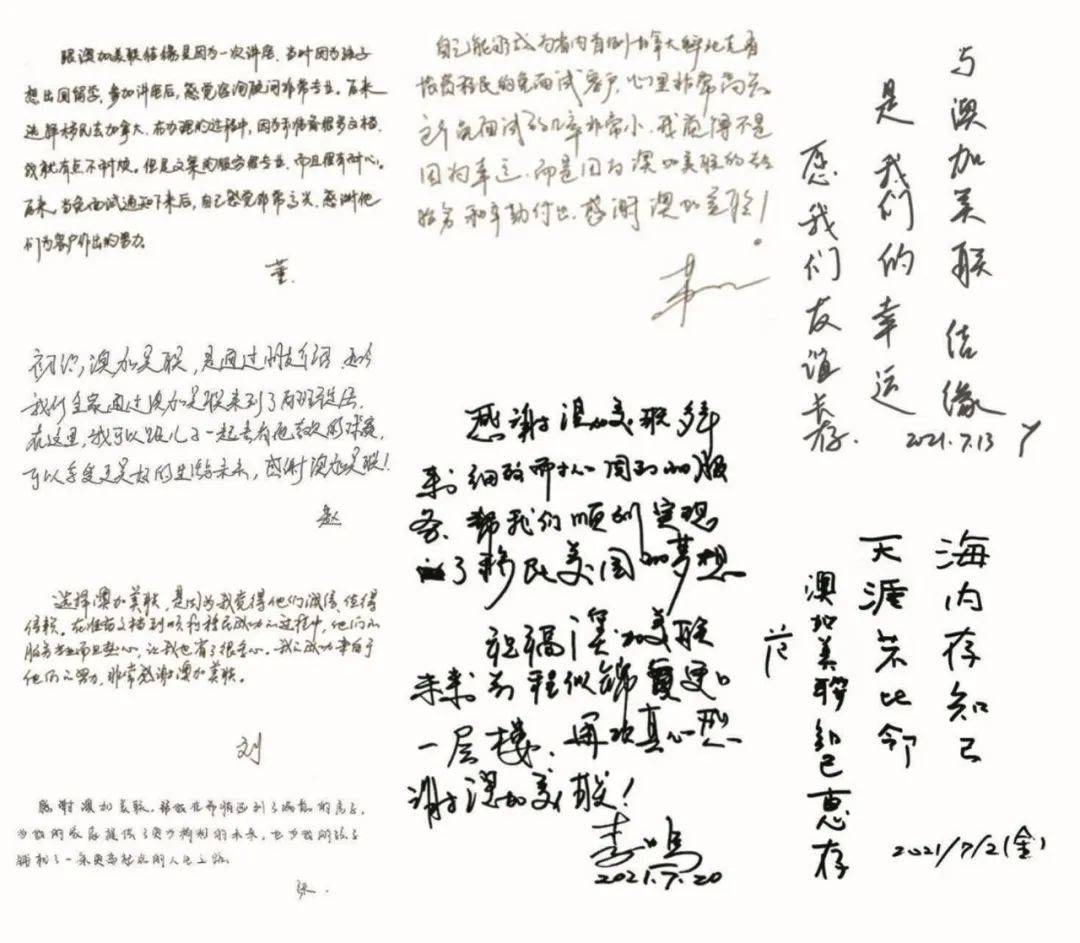 跟澳加美联结缘是因为一次讲座，当时因为孩子
想出国留学，参加讲座后，感觉咨询顾问非常专业。后来
选择移民去加拿大，在办理的过程中，因为准备着很多文档，
我就有点不耐烦。但是文案的服务很专业，而且很有耐心。
后来，当免面试通知下来后，自己感觉非常高兴，感谢他
们为客户作出的努力。
董
自己能够成为省内首例加拿大
投资移民的免面试客户，心里非常高兴
免面试的几率非常小，我觉得不是
因为幸运，而是因为澳加美联的
和辛勤付出，感谢澳加美联！
与澳加美联结缘
是我们的幸运
愿我们友谊长存.
2021.7.13
初识澳加美联，是通过朋友介绍，如今
我们全家通过澳加美联来到了
在这里，我可以跟儿子一起去看他喜欢的球赛，
可以享受更美好的生活和未来，感谢澳加美联！
赵
选择澳加美联，是因为我觉得他们诚信、值得
信赖。在准备文档到顺利移民成功的过程中，他们的
服务专业而且热心，让我也有了很多信心。我的成功来自于
他们的努力，非常感谢澳加美联。
刘
感谢澳加美联，帮我
为我的家庭提供了更为辉煌的未来，也为我的孩子
铺积了一条更高起点的人生之路。
张.
感谢澳加美联多年
来细致而耐心周到的服
务，帮我们顺利实现
了移民美国的梦想
祝福澳加美联
未来前程似锦更
一层楼，再次真心感
谢澳加美联！
2021.7.20
海内存知己
天涯若比邻
澳加美联知己惠存
范
2021/7/2(金)